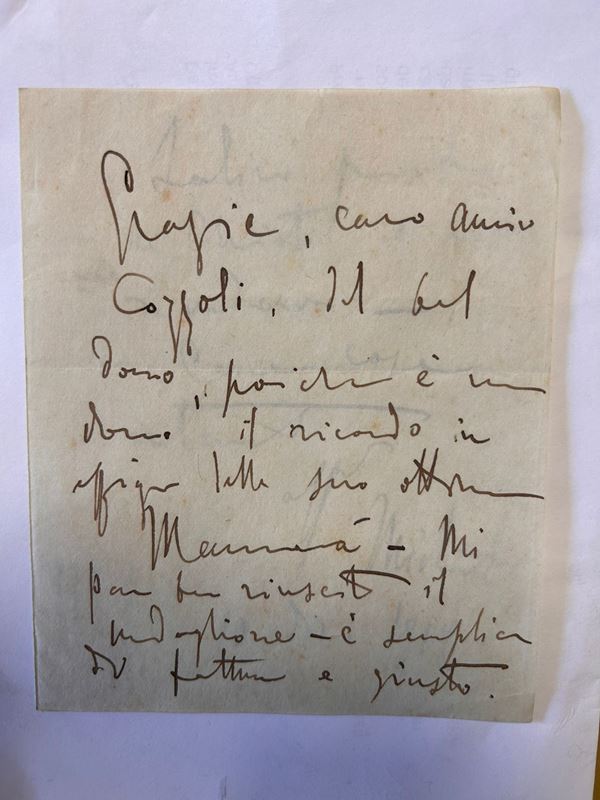 Grazie, caro amico
Cozzoli, del bel
dono, poiché è un
dono il ricordo in
effigie della sua ottima
Mammà - Mi
par ben riuscito il
medaglione - è semplice
di fattura e giusto.